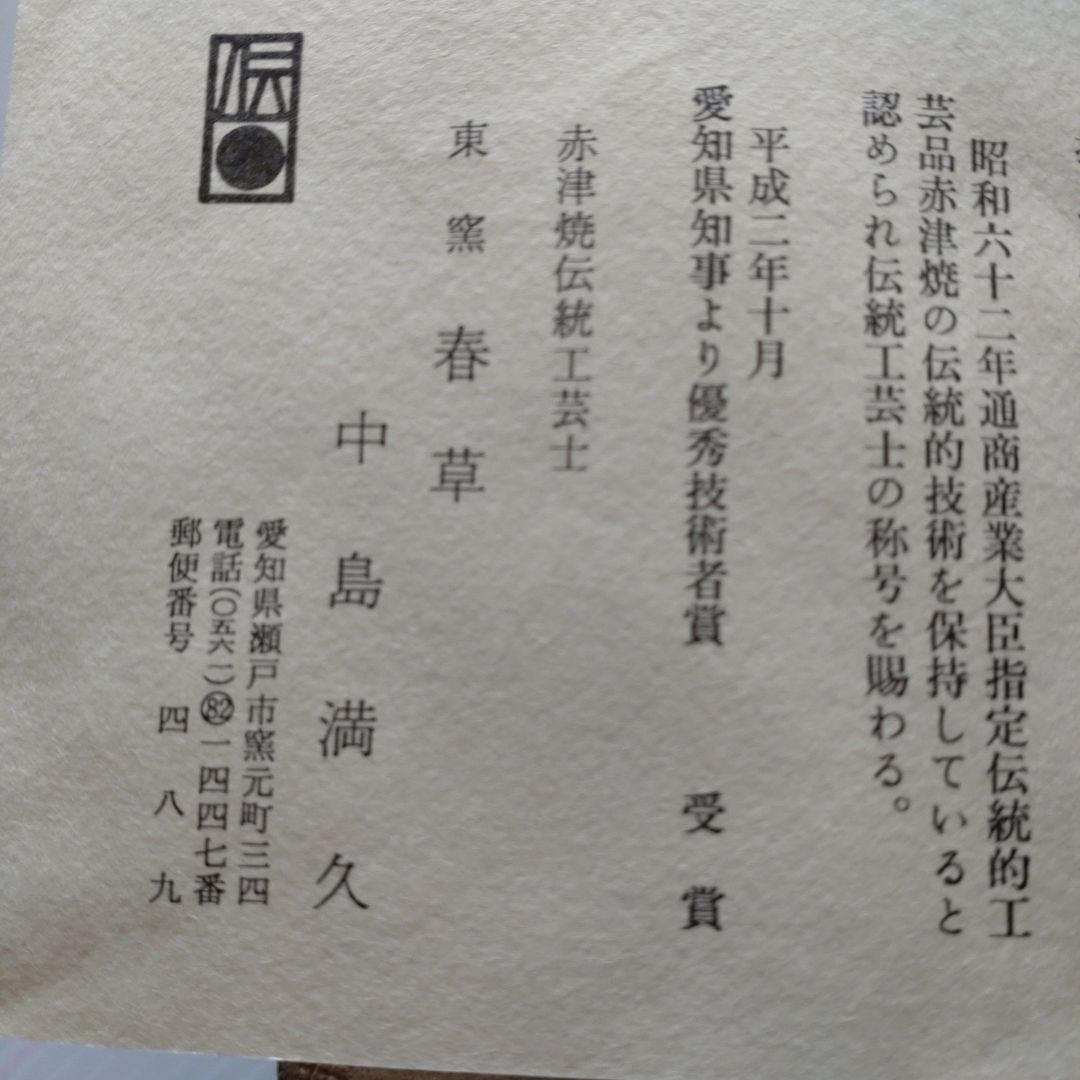 昭和六十二年通商産業大臣指定伝統的工
芸品赤津焼の伝統的技術を保持していると
認められ伝統工芸士の称号を賜わる。
平成二年十月
愛知県知事より優秀技術者賞 受賞
赤津焼伝統工芸士
東窯 春草
中島満久
愛知県瀬戸市窯元町三四
電話(〇五六一)82一四四七番
郵便番号 四八九
伝